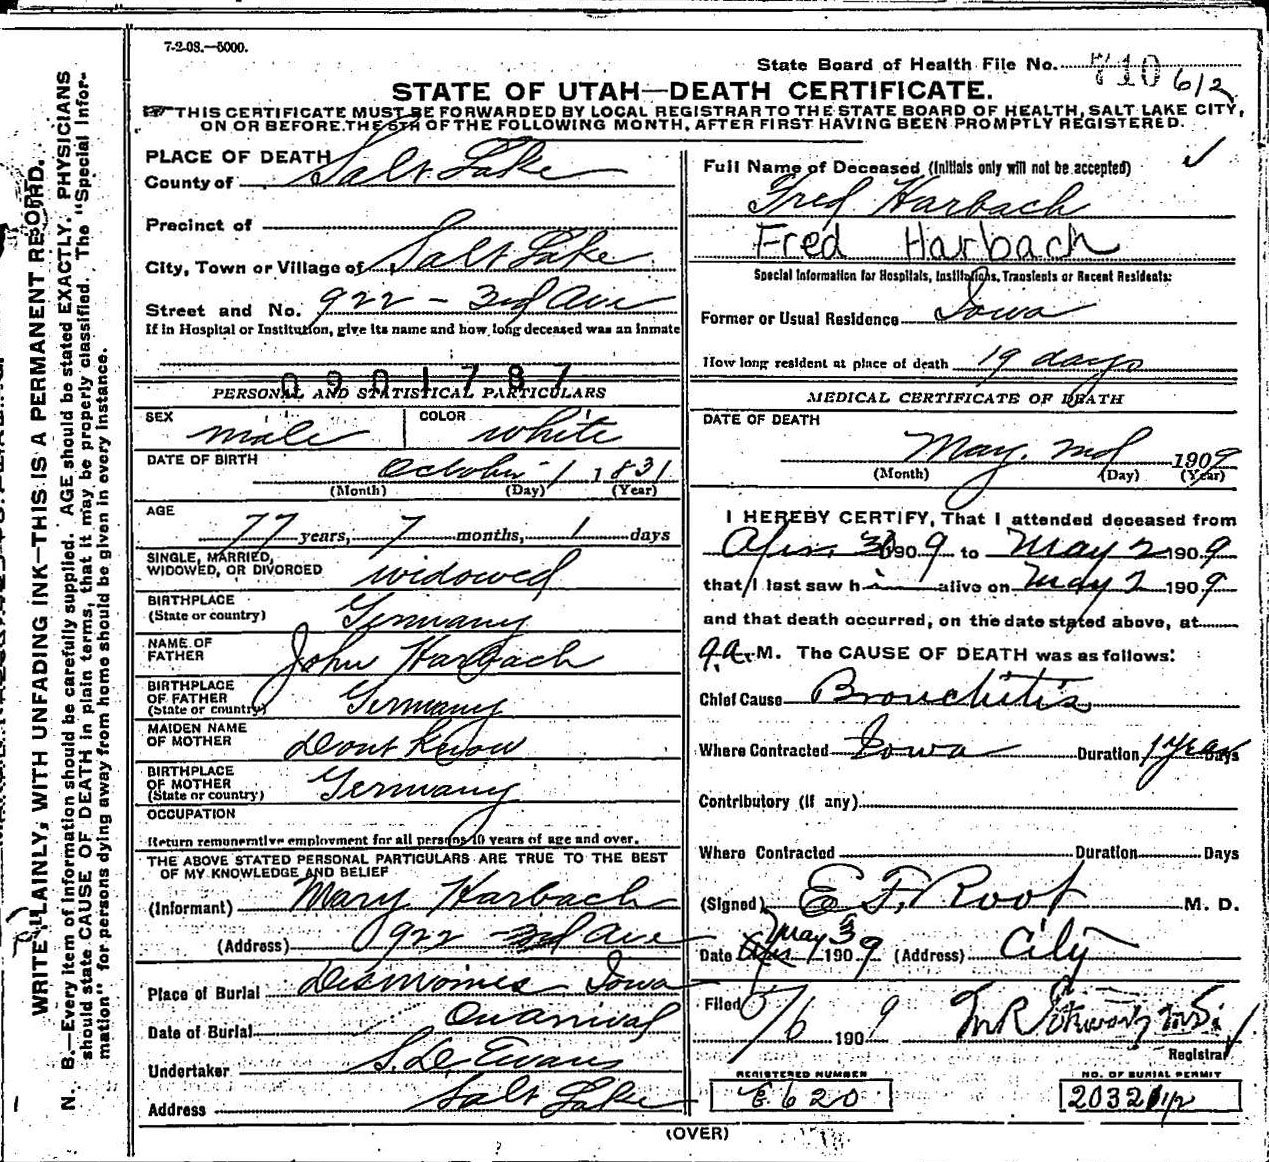 7-2-08.—5000.
State Board of Health File No. 710 612
STATE OF UTAH—DEATH CERTIFICATE.
THIS CERTIFICATE MUST BE FORWARDED BY LOCAL REGISTRAR TO THE STATE BOARD OF HEALTH, SALT LAKE CITY,
ON OR BEFORE THE 5TH OF THE FOLLOWING MONTH, AFTER FIRST HAVING BEEN PROMPTLY REGISTERED.
WRITE PLAINLY, WITH UNFADING INK—THIS IS A PERMANENT RECORD.
N. B.—Every item of information should be carefully supplied. AGE should be stated EXACTLY. PHYSICIANS
should state CAUSE OF DEATH in plain terms, that it may be properly classified. The "Special Infor-
mation" for persons dying away from home should be given in every instance.
PLACE OF DEATH
County of Salt Lake
Precinct of
City, Town or Village of Salt Lake
Street and No. 922 - 3rd Ave
If in Hospital or Institution, give its name and how long deceased was an inmate
0901787
PERSONAL AND STATISTICAL PARTICULARS
SEX male COLOR white
DATE OF BIRTH October 1 1831
(Month) (Day) (Year)
AGE
77 years, 7 months, 1 days
SINGLE, MARRIED,
WIDOWED, OR DIVORCED widowed
BIRTHPLACE
(State or country) Germany
NAME OF
FATHER John Harbach
BIRTHPLACE
OF FATHER
(State or country) Germany
MAIDEN NAME
OF MOTHER dont know
BIRTHPLACE
OF MOTHER
(State or country) Germany
OCCUPATION
Return remunerative employment for all persons 10 years of age and over.
THE ABOVE STATED PERSONAL PARTICULARS ARE TRUE TO THE BEST
OF MY KNOWLEDGE AND BELIEF
(Informant) Mary Harbach
(Address) 922 - 3rd Ave
Place of Burial Des Moines Iowa
Date of Burial On arrival
Undertaker S. D. Evans
Address Salt Lake
Full Name of Deceased (Initials only will not be accepted)
Fred Harbach
Fred Harbach
Special Information for Hospitals, Institutions, Transients or Recent Residents:
Former or Usual Residence Iowa
How long resident at place of death 19 days
MEDICAL CERTIFICATE OF DEATH
DATE OF DEATH
May. 2nd 1909
(Month) (Day) (Year)
I HEREBY CERTIFY, That I attended deceased from
Apr. 30 1909 to May 2 1909
that I last saw him alive on May 2 1909
and that death occurred, on the date stated above, at
9 a. M. The CAUSE OF DEATH was as follows:
Chief Cause Bronchitis
Where Contracted Iowa Duration 1 year Days
Contributory (if any)
Where Contracted Duration Days
(Signed) E. F. Root M. D.
Date May 3 1909 (Address) City
Filed 5/6 1909
Registrar
REGISTERED NUMBER
E 620
NO. OF BURIAL PERMIT
2032 1/2
(OVER)